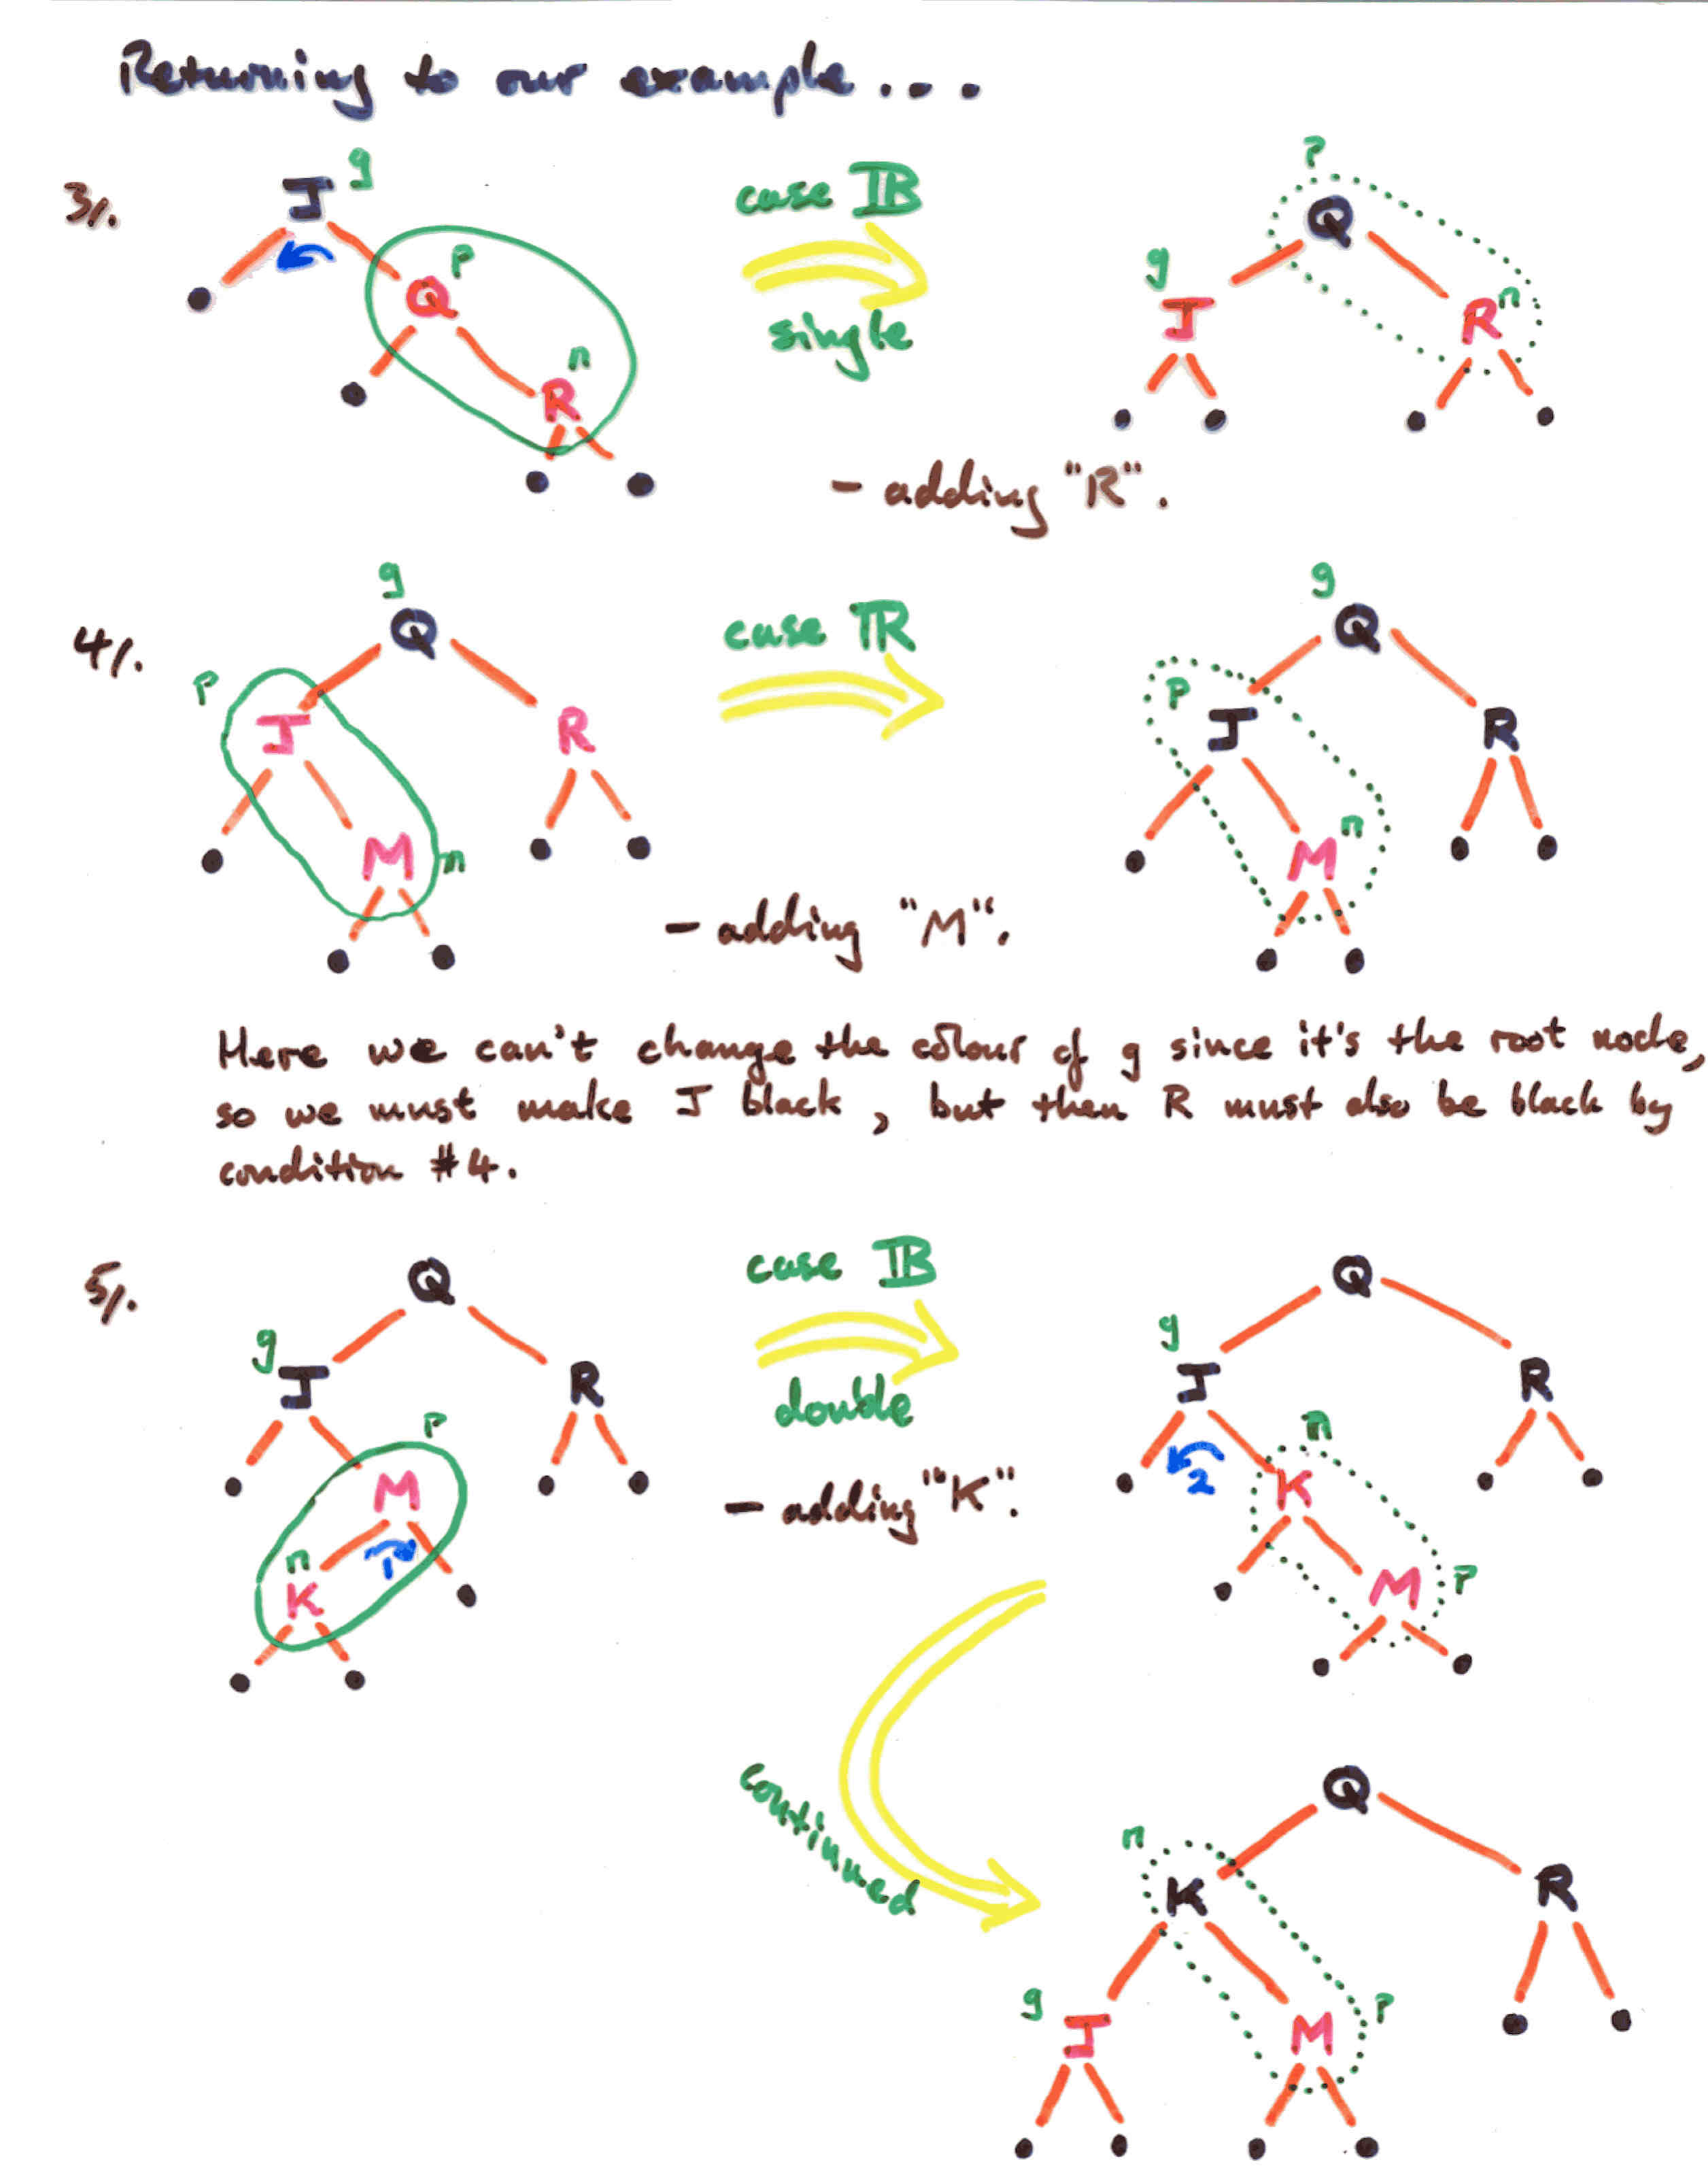 Returning to our example....
3/.
J g
Q p
R n
case IIB
single
p
Q
g
J
R n
- adding "R".
4/.
g
Q
p
J
R
M n
case IIR
g
Q
p
J
R
M n
- adding "M".
Here we can't change the colour of g since it's the root node,
so we must make J black, but then R must also be black by
condition #4.
5/.
Q
g
J
R
p
M
n
K
1
case IIB
double
- adding "K".
Q
g
J
R
n
K
2
M p
continued
Q
n
K
R
g
J
M p